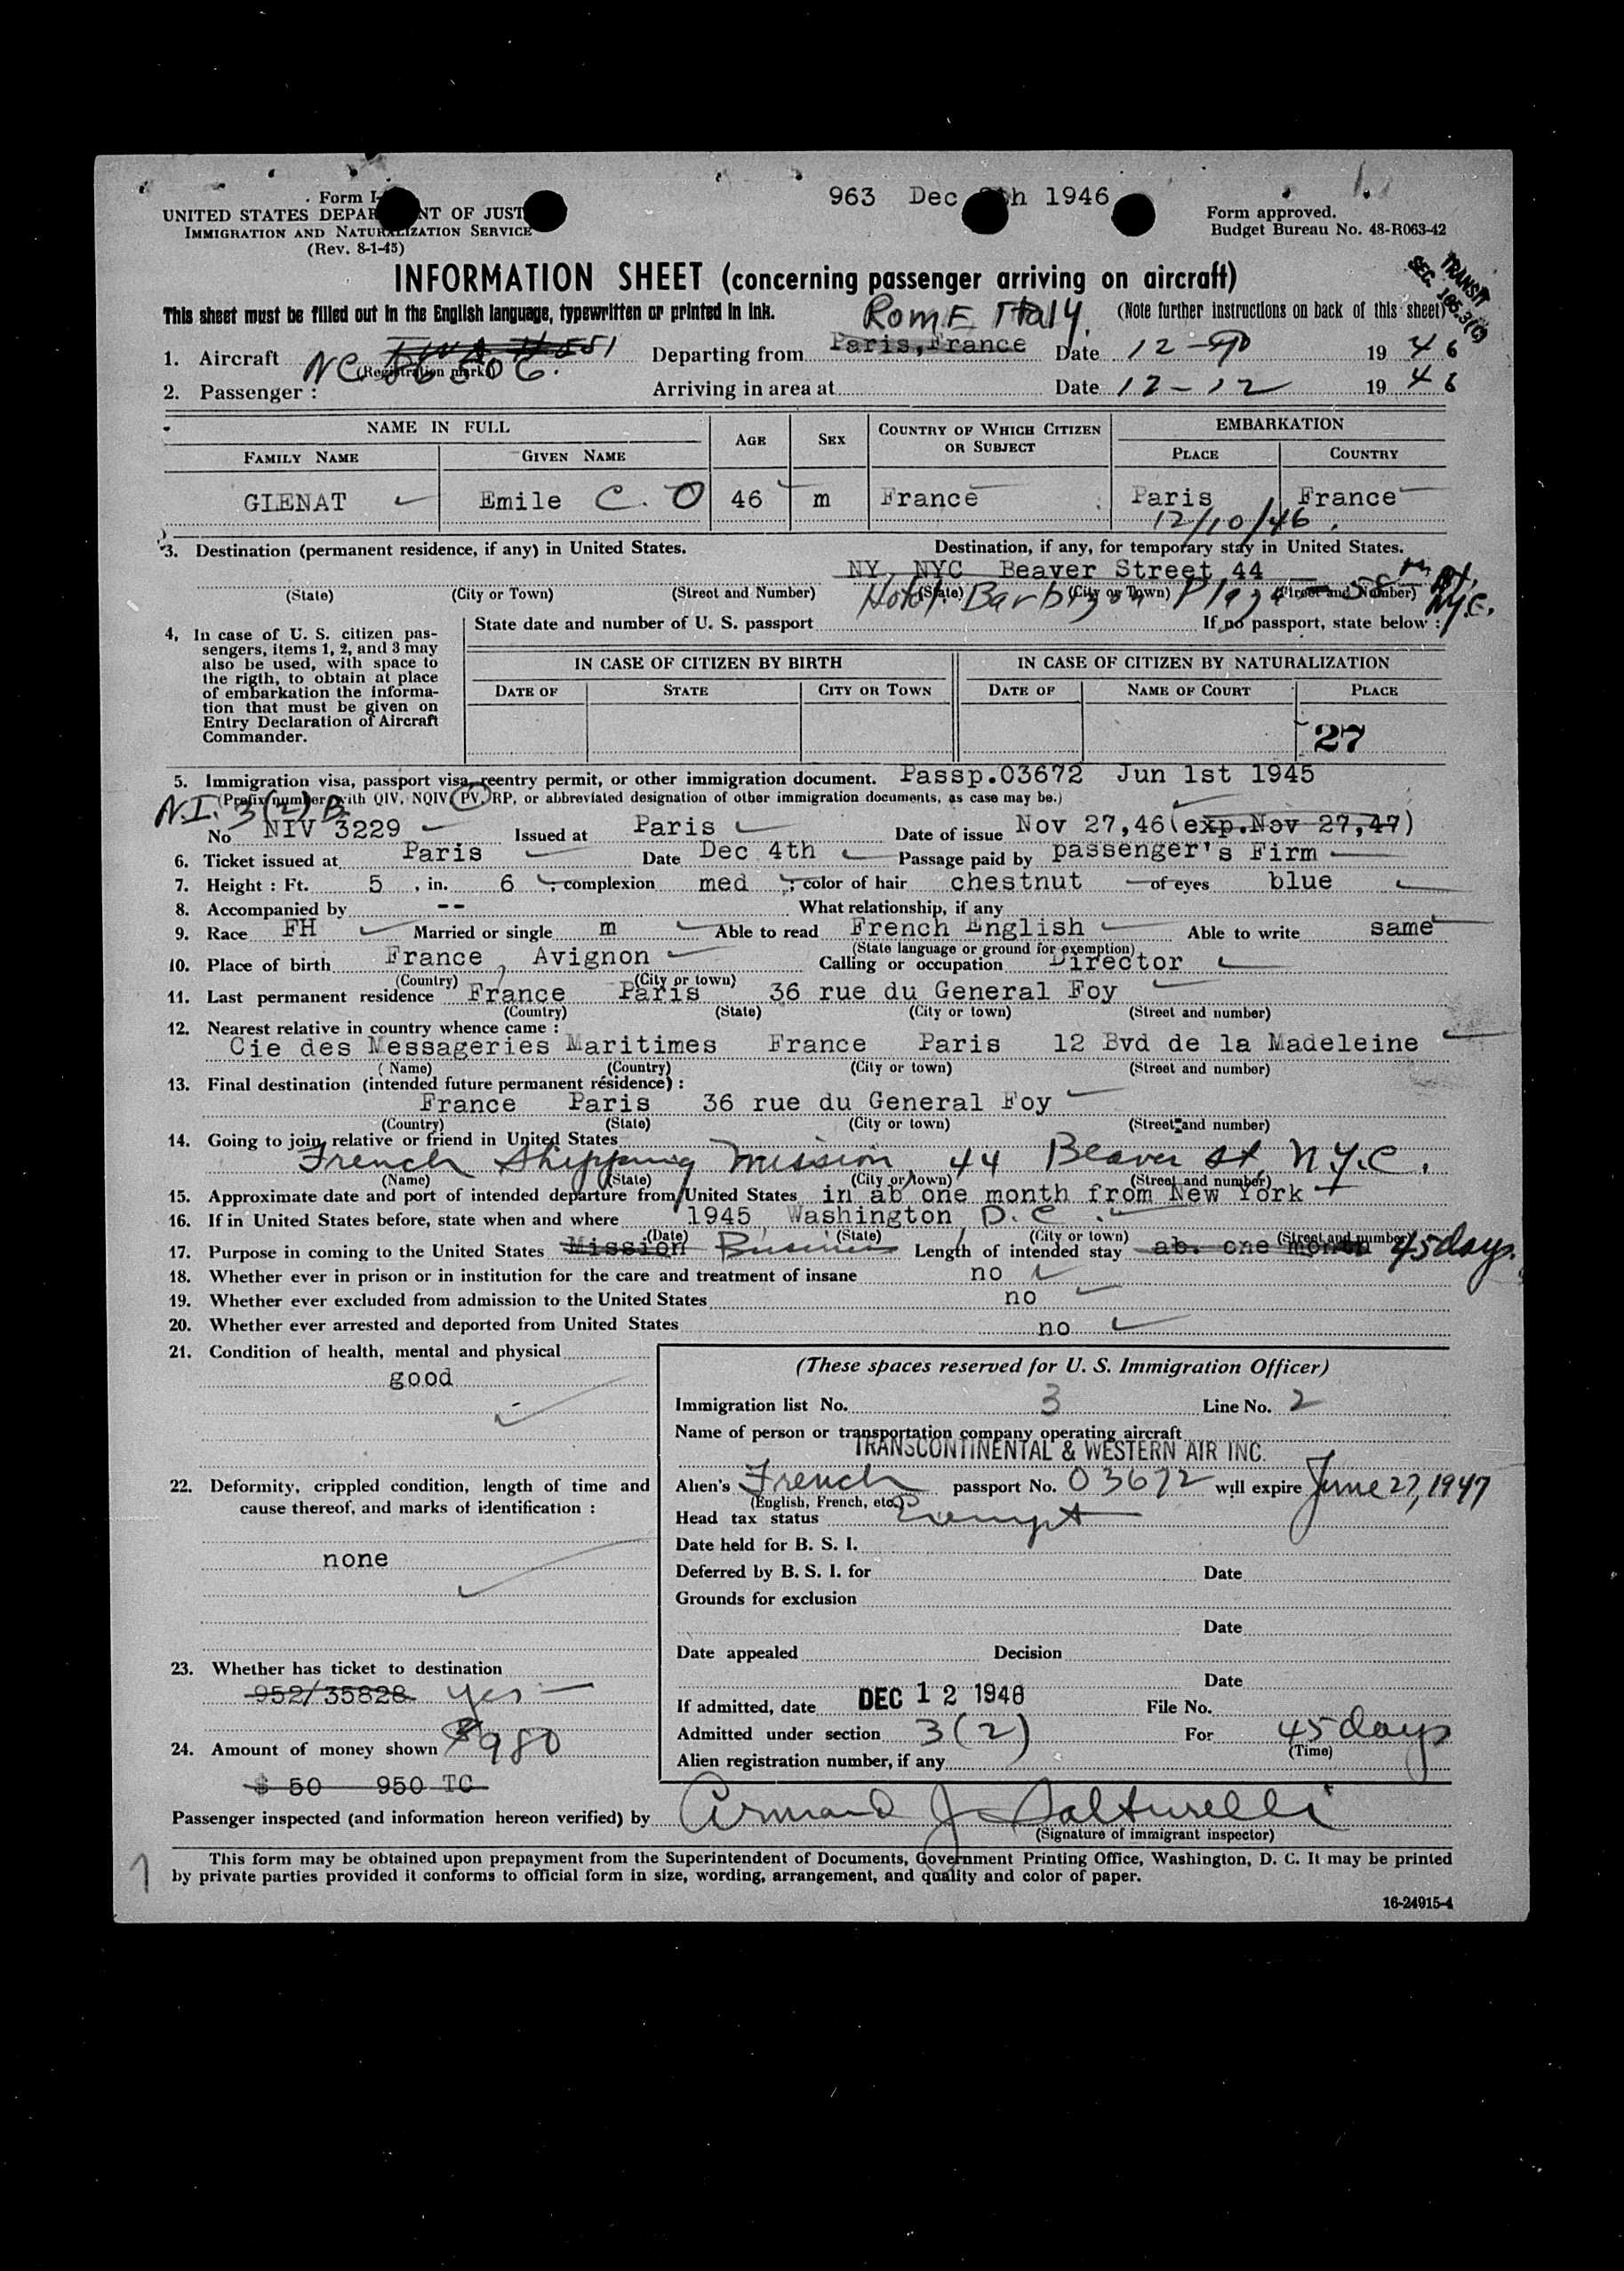 963 Dec th 1946
Form I-
UNITED STATES DEPAR NT OF JUST
IMMIGRATION AND NATURALIZATION SERVICE
(Rev. 8-1-45)
Form approved.
Budget Bureau No. 48-R063-42
TRANSIT
SEC 105.3(c)
INFORMATION SHEET (concerning passenger arriving on aircraft)
This sheet must be filled out in the English language, typewritten or printed in ink.
Rome Italy.
(Note further instructions on back of this sheet)
1. Aircraft NC 86506. (Registration marks) Departing from Paris, France Date 12- 1946
2. Passenger : Arriving in area at Date 12-12 1946
NAME IN FULL AGE SEX COUNTRY OF WHICH CITIZEN OR SUBJECT EMBARKATION
FAMILY NAME GIVEN NAME PLACE COUNTRY
GLENAT Emile C. O 46 m France Paris France
12/10/46.
3. Destination (permanent residence, if any) in United States. Destination, if any, for temporary stay in United States.
NY, NYC Beaver Street 44
(State) (City or Town) (Street and Number) (State) (City or Town) (Street and Number)
Hotel Barbizon Plaza - 58 th St, N.Y.C.
4. In case of U. S. citizen passengers, items 1, 2, and 3 may
also be used, with space to
the rigth, to obtain at place
of embarkation the information
that must be given on
Entry Declaration of Aircraft
Commander.
State date and number of U. S. passport If no passport, state below :
IN CASE OF CITIZEN BY BIRTH IN CASE OF CITIZEN BY NATURALIZATION
DATE OF STATE CITY OR TOWN DATE OF NAME OF COURT PLACE
27
5. Immigration visa, passport visa, reentry permit, or other immigration document. Passp.03672 Jun 1st 1945
(Prefix number with QIV, NQIV, PV, RP, or abbreviated designation of other immigration documents, as case may be.)
N.I. 3(2) B
No NIV 3229 Issued at Paris Date of issue Nov 27,46(exp.Nov 27,47)
6. Ticket issued at Paris Date Dec 4th Passage paid by passenger's Firm
7. Height : Ft. 5 , in. 6 ; complexion med ; color of hair chestnut of eyes blue
8. Accompanied by -- What relationship, if any
9. Race FH Married or single m Able to read French English Able to write same
(State language or ground for exemption)
10. Place of birth France , Avignon Calling or occupation Director
(Country) (City or town)
11. Last permanent residence France Paris 36 rue du General Foy
(Country) (State) (City or town) (Street and number)
12. Nearest relative in country whence came :
Cie des Messageries Maritimes France Paris 12 Bvd de la Madeleine
( Name) (Country) (City or town) (Street and number)
13. Final destination (intended future permanent résidence) :
France Paris 36 rue du General Foy
(Country) (State) (City or town) (Street and number)
14. Going to join relative or friend in United States
French Shipping Mission, 44 Beaver St, N.Y.C.
(Name) (State) (City or town) (Street and number)
15. Approximate date and port of intended departure from United States in ab one month from New York
16. If in United States before, state when and where 1945, Washington, D. C.
(Date) (State) (City or town) (Street and number)
17. Purpose in coming to the United States Mission Business Length of intended stay ab. one month 45 days.
18. Whether ever in prison or in institution for the care and treatment of insane no
19. Whether ever excluded from admission to the United States no
20. Whether ever arrested and deported from United States no
21. Condition of health, mental and physical
good
22. Deformity, crippled condition, length of time and
cause thereof, and marks of identification :
none
23. Whether has ticket to destination
952/35828 yes
24. Amount of money shown $980
$ 50 950 TC
(These spaces reserved for U. S. Immigration Officer)
Immigration list No. 3 Line No. 2
Name of person or transportation company operating aircraft
TRANSCONTINENTAL & WESTERN AIR INC.
Alien's French passport No. 03672 will expire June 27, 1947
(English, French, etc.)
Head tax status Exempt
Date held for B. S. I.
Deferred by B. S. I. for Date
Grounds for exclusion
Date
Date appealed Decision
Date
If admitted, date DEC 12 1946 File No.
Admitted under section 3(2) For 45 days
(Time)
Alien registration number, if any
Passenger inspected (and information hereon verified) by Armand J. Salturelli
(Signature of immigrant inspector)
This form may be obtained upon prepayment from the Superintendent of Documents, Government Printing Office, Washington, D. C. It may be printed
by private parties provided it conforms to official form in size, wording, arrangement, and quality and color of paper.
16-24915-4